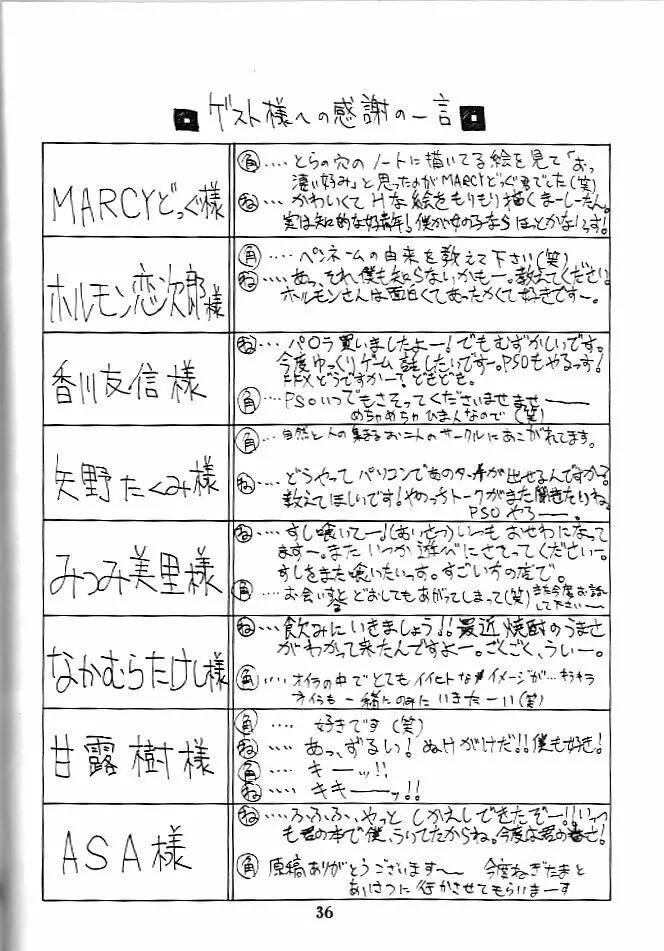 ゲスト様への感謝の一言
MARCYどっぐ様
角‥‥とらの穴のノートに描いてる絵を見て「おっ
凄い好み」と思ったのがMARCYどっぐ君でした(笑)
ね‥‥かわいくてHな絵をもりもり描くまーしーたん。
実は知的な好青年!僕が女の子ならほっとかないっす!
ホルモン恋次郎様
角‥‥ペンネームの由来を教えて下さい(笑)
ね‥‥あっ、それ僕も知らないかもー。教えてください。
ホルモンさんは面白くてあったかくて好きですー。
香川友信様
ね‥‥パロラ買いましたよー!でもむずかしいです。
今度ゆっくりゲーム話したいですー。PSOもやるっす!
FFXどうですかー?どもども。
角‥‥PSOいつでもさそってくださいませませー
めちゃめちゃひまんなので(笑)
矢野たくみ様
角‥‥自然と人の集まるお二人のサークルにあこがれてます。
ね‥‥どうやってパソコンであのタッチが出せるんですか?
教えてほしいです!やのっちトークがまた聞きたいね。
PSOやろー。
みつみ美里様
ね‥‥すし喰いてー!(あいさつ)いつもおせわになって
ますー。またいつか遊べにさそってくださいー。
すしをまた喰いたいっす。すごい方の店で。
角‥‥お会いすとどおしてもあがってしまって(笑)また今度お話
して下さい〜
なかむらたけし様
ね‥‥飲みにいきましょう!!最近焼酎のうまさ
がわかって来たんですよー。ごくごく、うぃー。
角‥‥オイラの中でとてもイイヒトなイメージが‥‥キラキラ
オイラも一緒にのみにいきたーい(笑)
甘露樹様
角‥‥好きです(笑)
ね‥‥あっ、ずるい!ぬけがけだ!!僕も好き!
角‥‥キーッ!!
ね‥‥キキーッ!!
ASA様
ね‥‥ふふふ、やっとしかえしできたぞー!!いっつ
も君の本で僕、うけてたからね。今度は君の番さ!
角 原稿ありがとうございます〜 今度ねぎたまと
あいさつに行かさせてもらいまーす
36